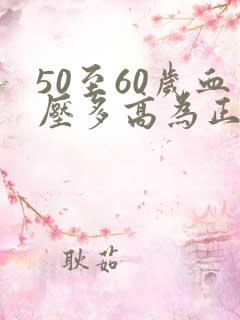 50至60歲血
壓多高為正
耿茹